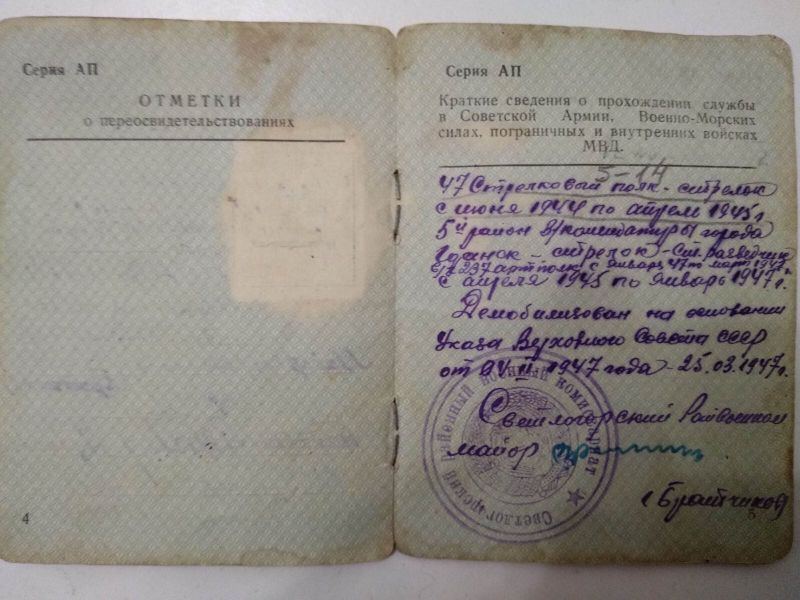 Серия АП
ОТМЕТКИ
о переосвидетельствованиях
4
Серия АП
Краткие сведения о прохождении службы
в Советской Армии, Военно-Морских
силах, пограничных и внутренних войсках
МВД.
5-14
47 Стрелковый полк - стрелок
с июня 1944 по апрель 1945 г
5й район в/комендатуры города
стрелок - Ст. разведчик
237 артполк с январь 47 по март 1947 г.
с апреля 1945 по январь 1947 г.
Демобилизован на основании
Указа Верховного Совета СССР
от 1947 года - 25.03.1947 г.
Светлогорский Райвоенком
майор
(Братчиков)
5
Светлогорский районный военный комиссариат